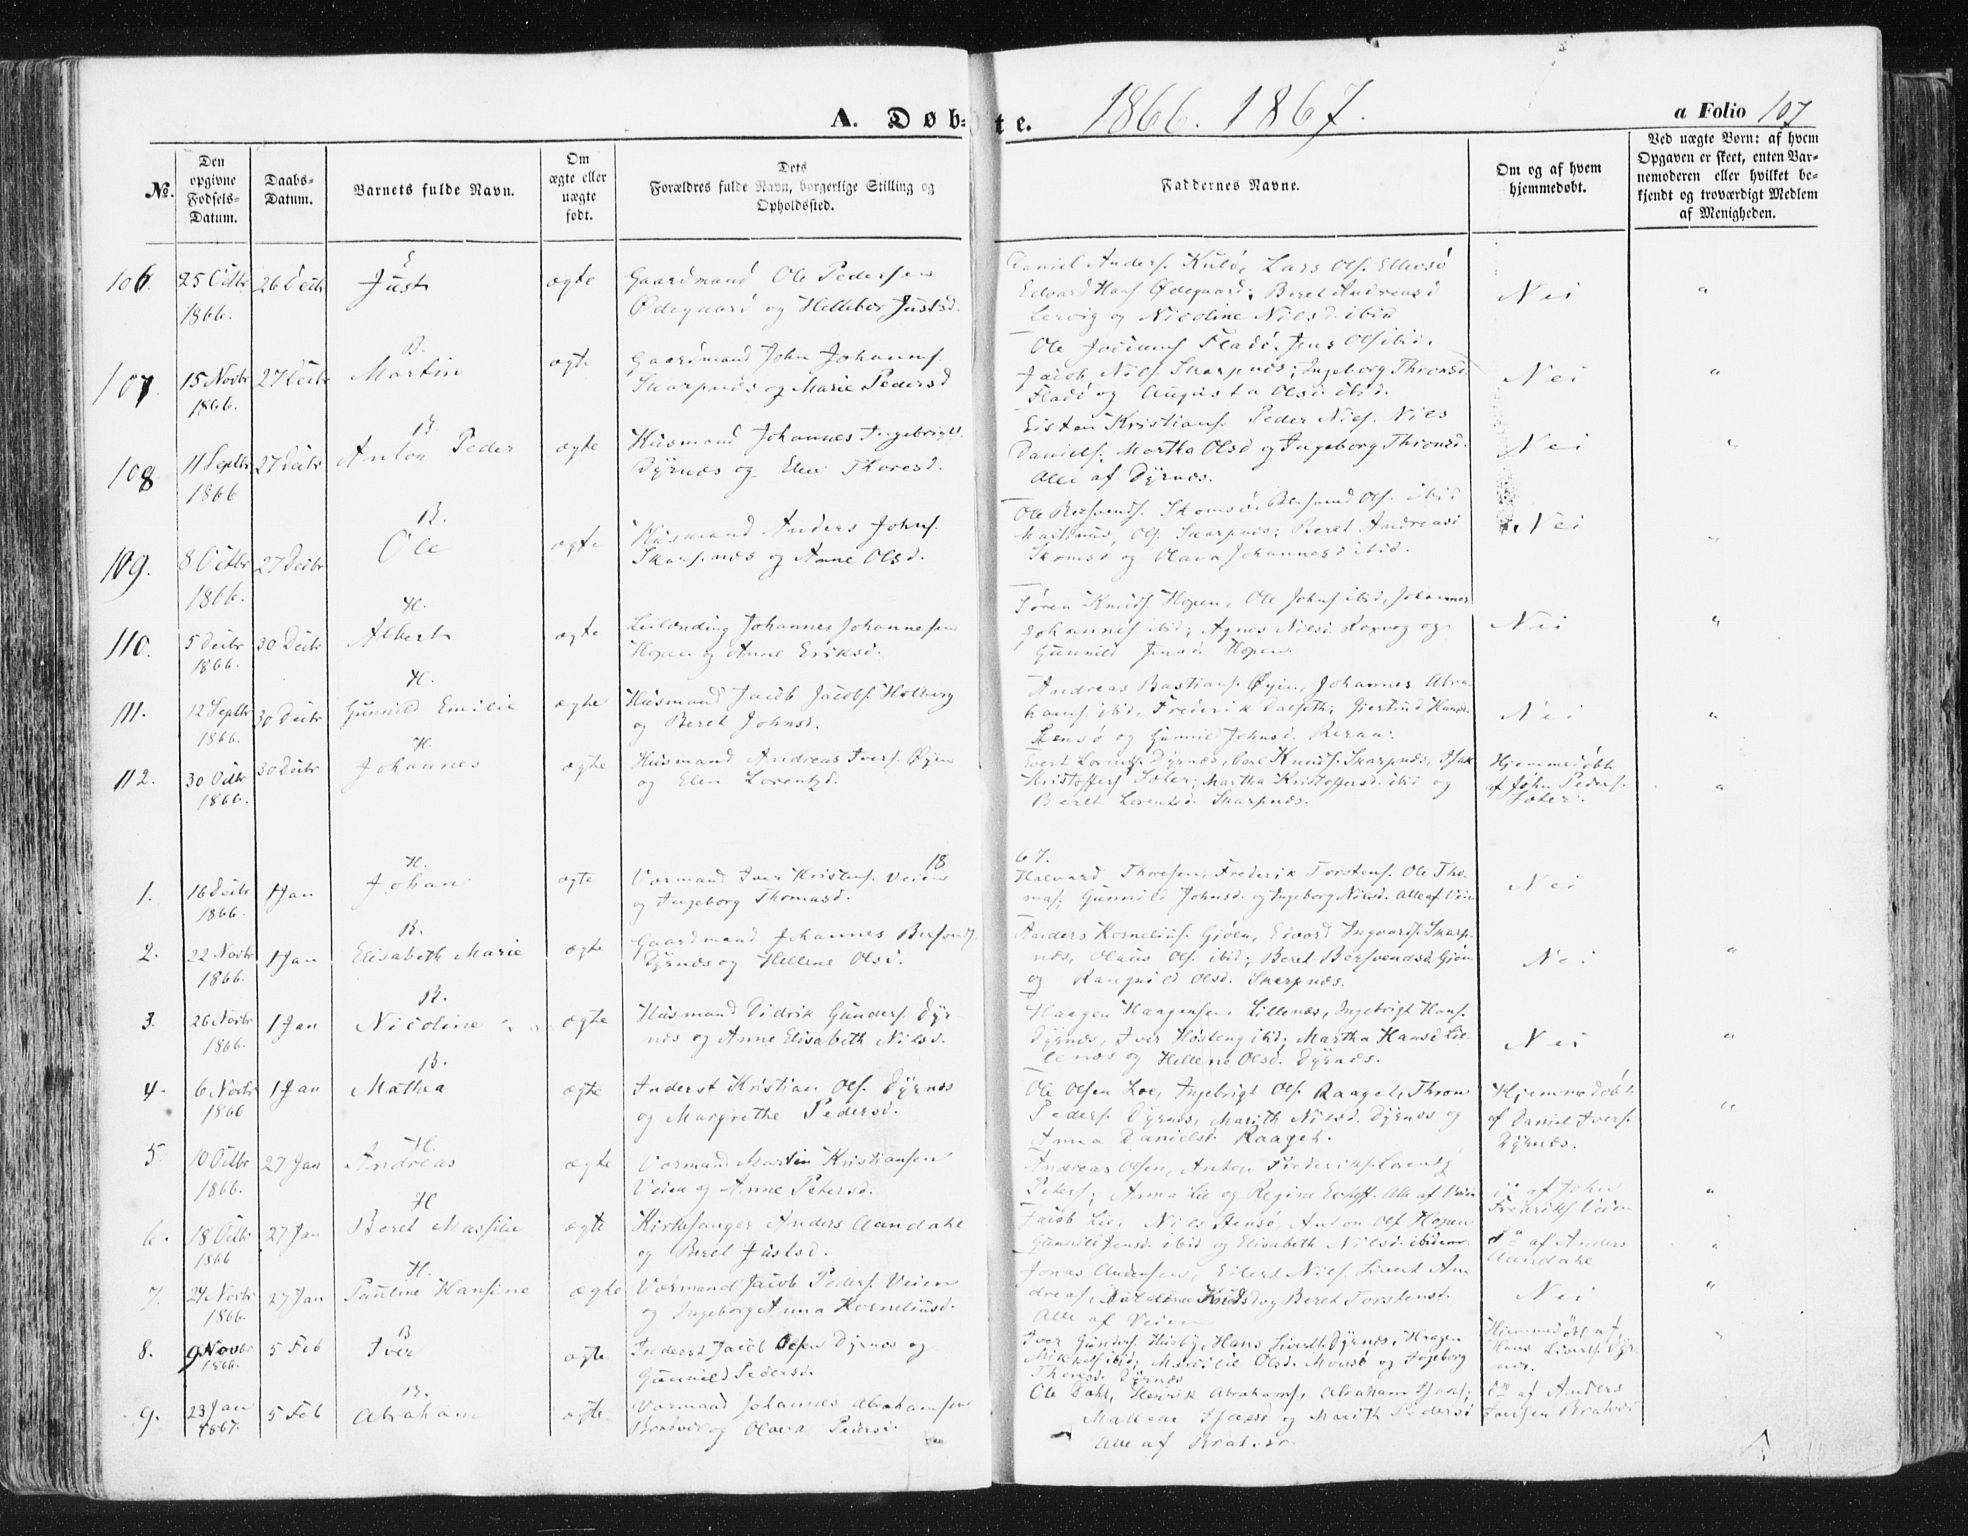 A. Døbte. 1866. 1867.
a Folio 107
No.
Den opgivne Fødsels-Datum.
Daabs-Datum.
Barnets fulde Navn.
Om ægte eller uægte født.
Dets Forældres fulde Navn, borgerlige Stilling og Opholdssted.
Faddernes Navne.
Om og af hvem hjemmedøbt.
Ved uægte Børn: af hvem Opgaven er skeet, enten Barnemoderen eller hvilket bekjendt og troværdigt Medlem af Menigheden.
106. 25 Octbr 1866. 26 Decbr Just ægte
Gaardmand Ole Pedersen
Ødegaard og Hellebor Justsd.
Daniel Anders. Kulø, Lars Ols.
Edvard Hans. Ødegaard; Beret Andreasd
Lervig og Nicoline Nilsd. ibid
Nei "
107. 15 Novbr 1866. 27 Decbr B. Martin ægte
Gaardmand John Johanns.
Skarpnæs og Marie Pedersd
Ole Fladø. Jens Ols. ibid.
Jacob Nils. Skarpnæs; Ingeborg Thronsd.
Fladø og Augusta Olsd. ibid.
Nei "
108 11 Septbr 1866 27 Decbr B. Anton Peder ægte
Husmand Johannes Ingebrigts.
Dyrnæs og Elen Thoresd.
Eisten Kristians. Peder Niels. Niels
Daniels; Martha Olsd og Ingeborg Thronsd.
Alle af Dyrnæs.
Nei "
109. 8 Octbr 1866. 27 Decbr B. Ole ægte
Husmand Anders Johns.
Skarpnæs og Anne Olsd.
Ole Skomsø. Ols. ibid
Martinus Ols. Skarpnæs; Beret Andreasd
Skomsø og Olava Johannesd ibid.
Nei "
110. 5 Decbr 1866. 30 Decbr H. Albert ægte
Leilending Johannes Johannesen
Hopen og Anne Eriksd.
Søren Knuds. Hopen, Ole Johns. ibid, Johannes
Johannes. ibid; Agnes Nilsd. og
Gunnild Jensd. Hopen
Nei "
111. 12 Septbr 1866. 30 Decbr H. Gunnild Emilie ægte
Husmand Jacob Jacobs. Holberg
og Beret Johnsd.
Andreas Bastians. Øyen, Johannes Abra-
hams. ibid, Frederik Giertrud Hansd.
og Johnsd.
Nei "
112. 30 Octbr 1866. 30 Decbr H. Johannes ægte
Husmand Andreas Ivers. Øyen
og Elen Lorentzd.
Evert Lornts. Dyrnæs, Carl Knuds. Skarpnæs, Isak
Kristoffers. Sæter; Martha Kristoffersd. ibid og
Beret Lorentzd. Skarpnæs.
Hjemmedøbt
af John Peders.
Sæter. "
1867.
1. 16 Decbr 1866. 1 Jan H. Johan ægte
Vormand Iver Kristens. Veien
og Ingeborg Thomasd.
Halvard Thoresen, Frederik Torstens. Ole Tho-
mas; Gunnild Johnsd. og Ingeborg Nilsd. Alle af Veien
Nei
2. 22 Novbr 1866. 1 Jan B. Elisabeth Marie ægte
Gaardmand Johannes Bersvends.
Dyrnæs og Hellene Olsd.
Anders Kornelius. Gjøen, Edvard Ingvards. Skarp-
næs, Olaus Ols. ibid; Beret Bersvendsd. Gjøen
og Rangnild Olsd. Skarpnæs.
Nei "
3. 26 Novbr 1866. 1 Jan B. Nicoline ægte
Husmand Didrik Gunders. Dyr-
næs og Anne Elisabeth Nilsd.
Haagen Haagensen Lillenæs, Ingebrigt Hans.
Dyrnæs, Iver ibid; Martha Hansd Lil-
lenæs og Hellene Olsd. Dyrnæs.
Nei "
4. 6 Novbr 1866 1 Jan B. Mathea ægte
Inderst Kristian Ols. Dyrnæs
og Margrethe Pedersd.
Ole Olsen Loe, Ingebrigt Ols. Raaget, Thron
Peders. Dyrnæs, Marith Nilsd. Dyrnæs og
Anna Danielsd. Raaget.
Hjemmedøbt
af Daniel Ivers.
Dyrnæs. "
5. 10 Octbr 1866. 27 Jan H. Andreas ægte
Vormand Martin Kristiansen
Veien og Anne Petersd.
Andreas Olsen, Anton Frederiks. Lorents
Peters; Anna Lie og Regine Alle af Veien
do af John
Fredriks. Veien "
6. 18 Octbr 1866 27 Jan H Beret Massilie ægte
Kirkesanger Anders Aandahl
og Beret Justsd.
Jacob Lie, Nils Anton Ols. Hopen
Gunnild Jensd. ibid og Elisabeth Nilsd. ibidem.
do af Anders
Aandahl "
7. 24 Novbr 1866. 27 Jan H. Pauline Hansine ægte
Vormand Jacob Peders. Veien
og Ingeborg Anna Korneliusd.
Jonas Andersen, Eilert Niels. Sivert An-
dreas, og Beret Torstensd.
Alle af Veien
Nei "
8. 9 Novbr 1866. 5 Feb B Iver ægte
Inderst Jacob Olsen Dyrnæs og
Gunnild Pedersd.
Iver Gunders. Husby, Hans Siverts. Dyrnæs, Haagen
ibid; Olsd. og Ingeborg
Thoresd. Dyrnæs
Hjemmedøbt af
Hans Siverts. Dyr-
næs. "
9. 23 Jan 1867. 5 Feb B. Abraham ægte
Vormand Johannes Abrahamsen
Bratvær og Olava Pedersd.
Ole Dahl, Henrik Abrahams, Abraham Isaks;
Mallene Isaksd og Marith Pedersd
Alle af Bratvær.
do af Anders
Bratvær